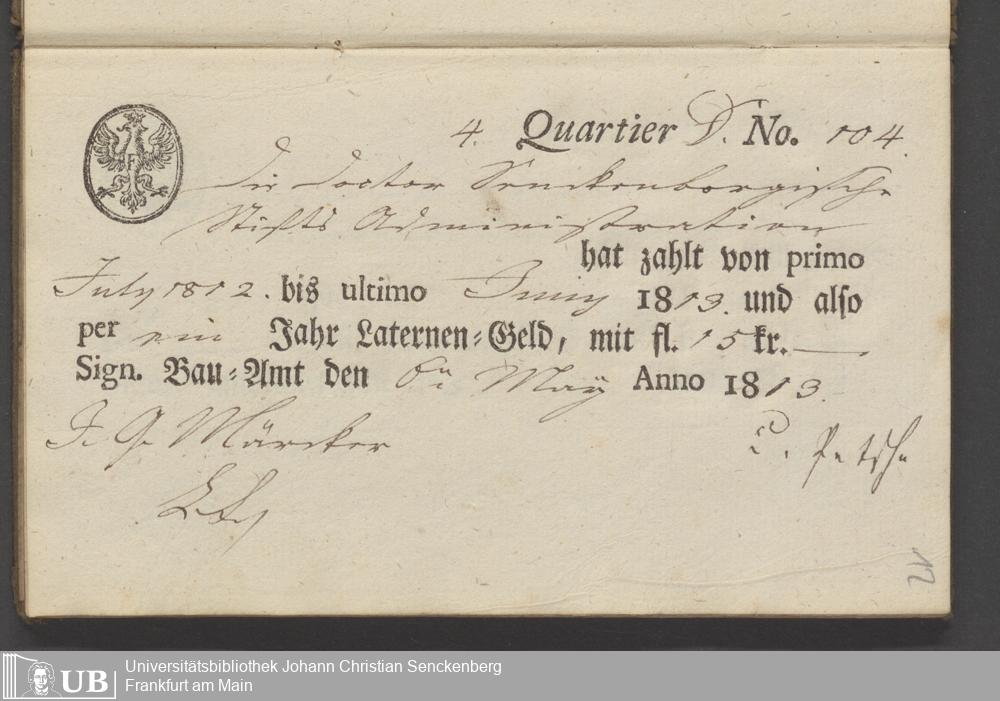 4. Quartier D. No. 104.
F
Die Doctor Senckenbergische
Stifts Administration
hat zahlt von primo
July 1812. bis ultimo Juny 1813. und also
per ein Jahr Laternen-Geld, mit fl. 15 kr. —.
Sign. Bau-Amt den 6n. May Anno 1813.
J. G. Märcker
C. Petsch
12
UB
Universitätsbibliothek Johann Christian Senckenberg
Frankfurt am Main